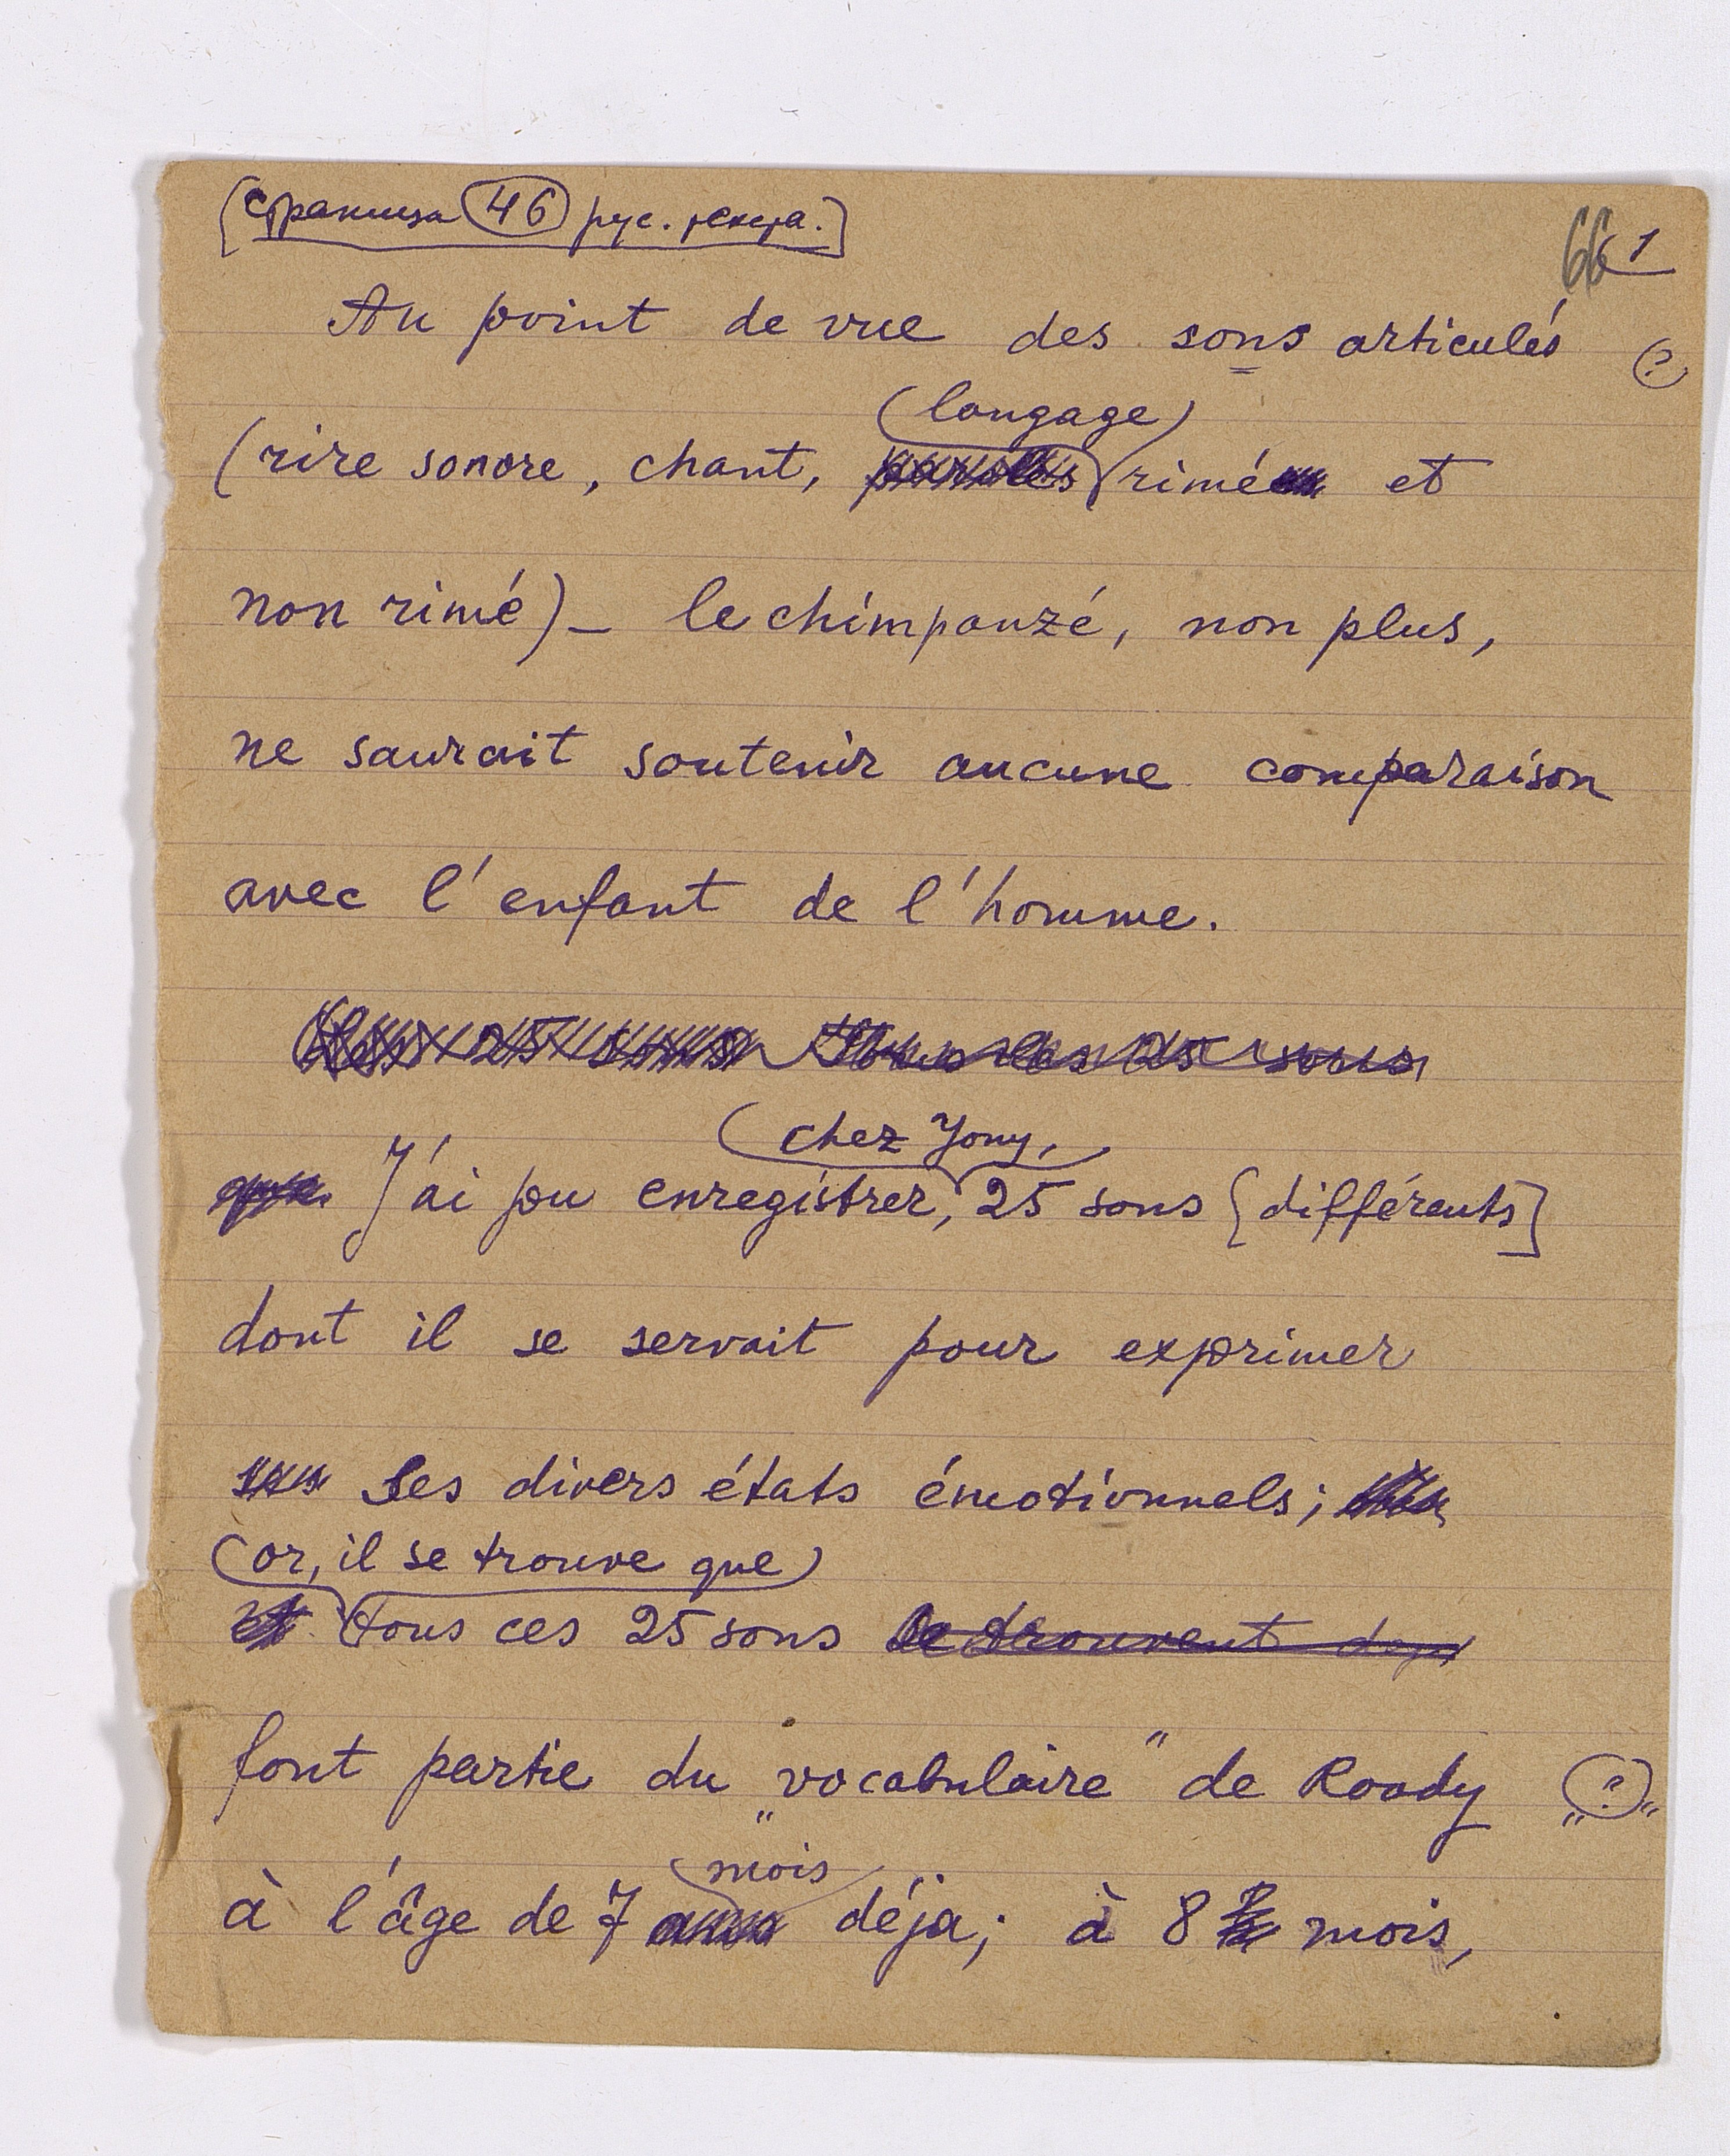 [страница 46 рус. текста.]
66 1
Au point de vue des sons articulés (?)
(langage)
(rire sonore, chant, paroles rimé et
non rimé) – le chimpanzé, non plus,
ne saurait soutenir aucune comparaison
avec l'enfant de l'homme.
Les 25 sons Tous les 25 sons
chez Yony,
J'ai pu enregistrer, 25 sons [différents]
dont il se servait pour exprimer
ses divers états émotionnels;
(or, il se trouve que)
et tous ces 25 sons se trouvent déjà
font partie du "vocabulaire" de Roody "(?)"
mois
à l'âge de 7 ans déja; à 8 mois,